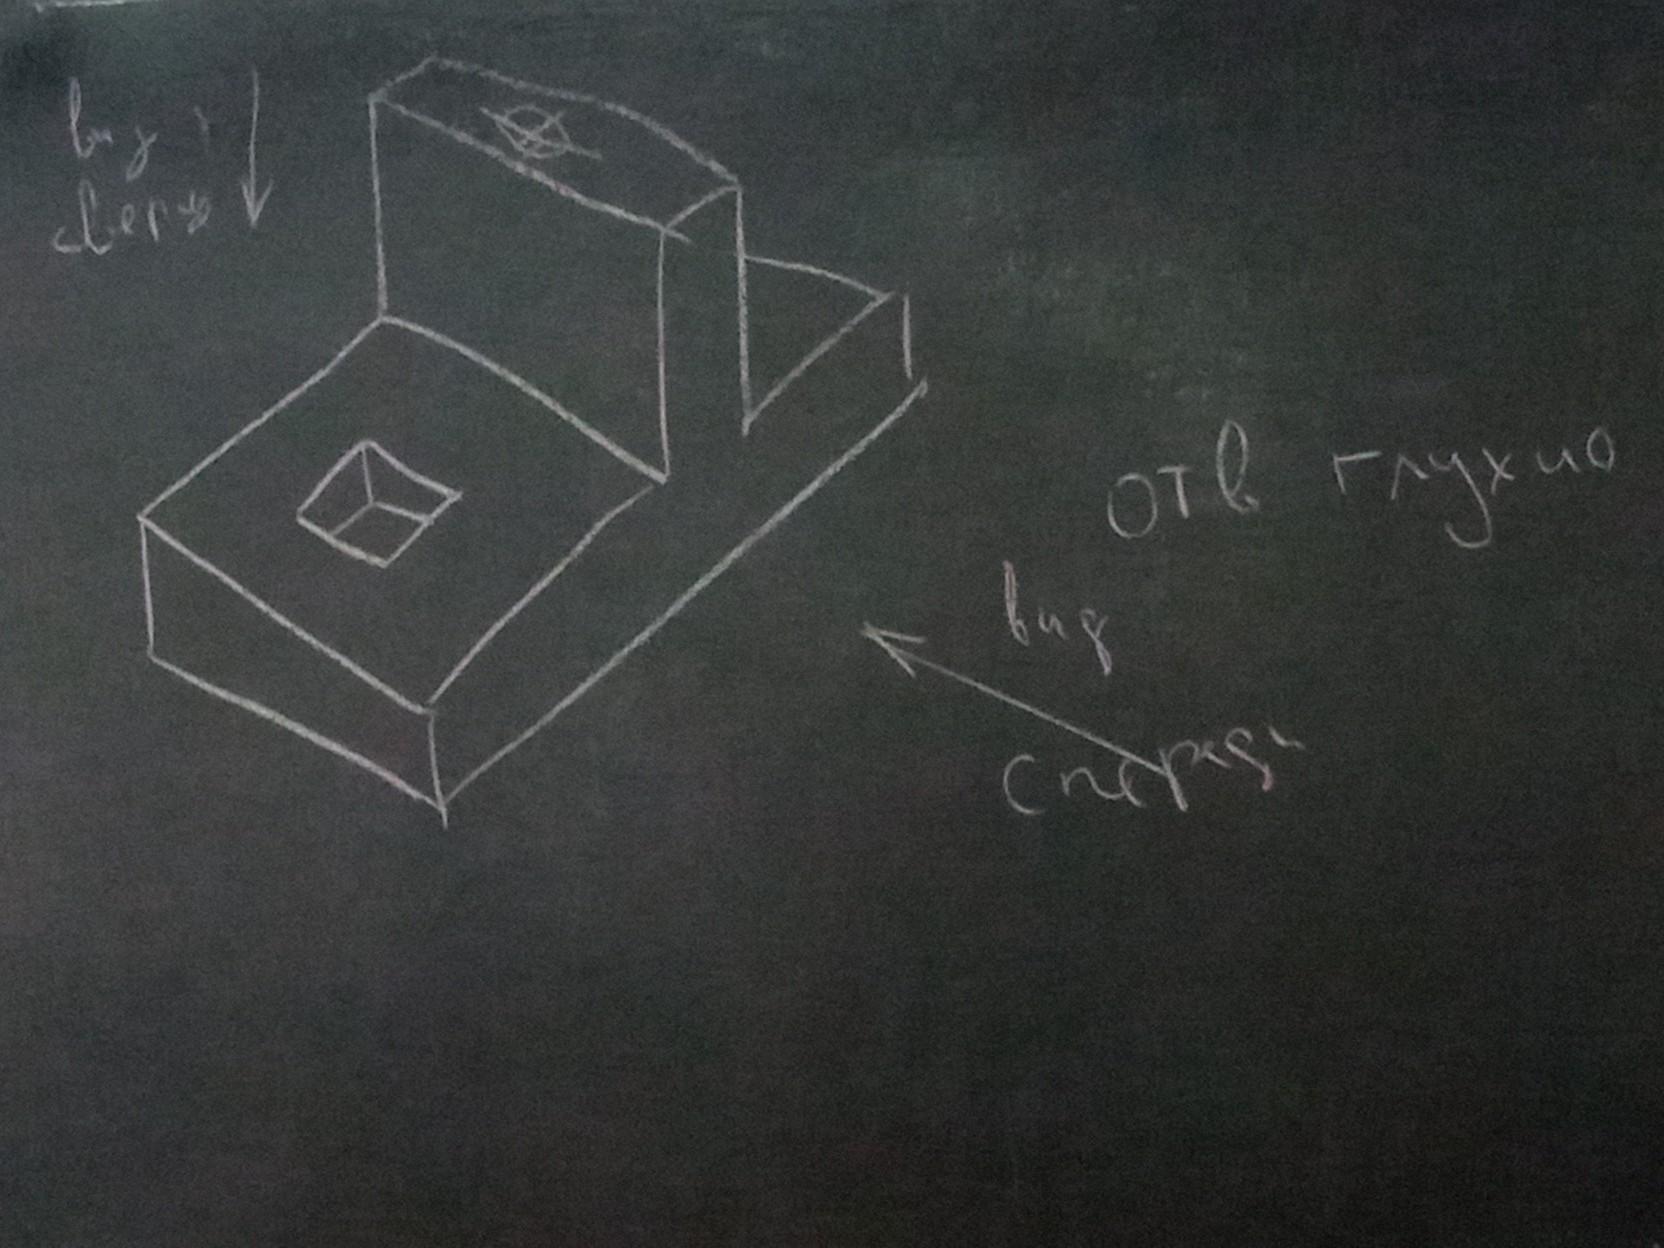 вид
сверху
отв глухие
вид
спереди